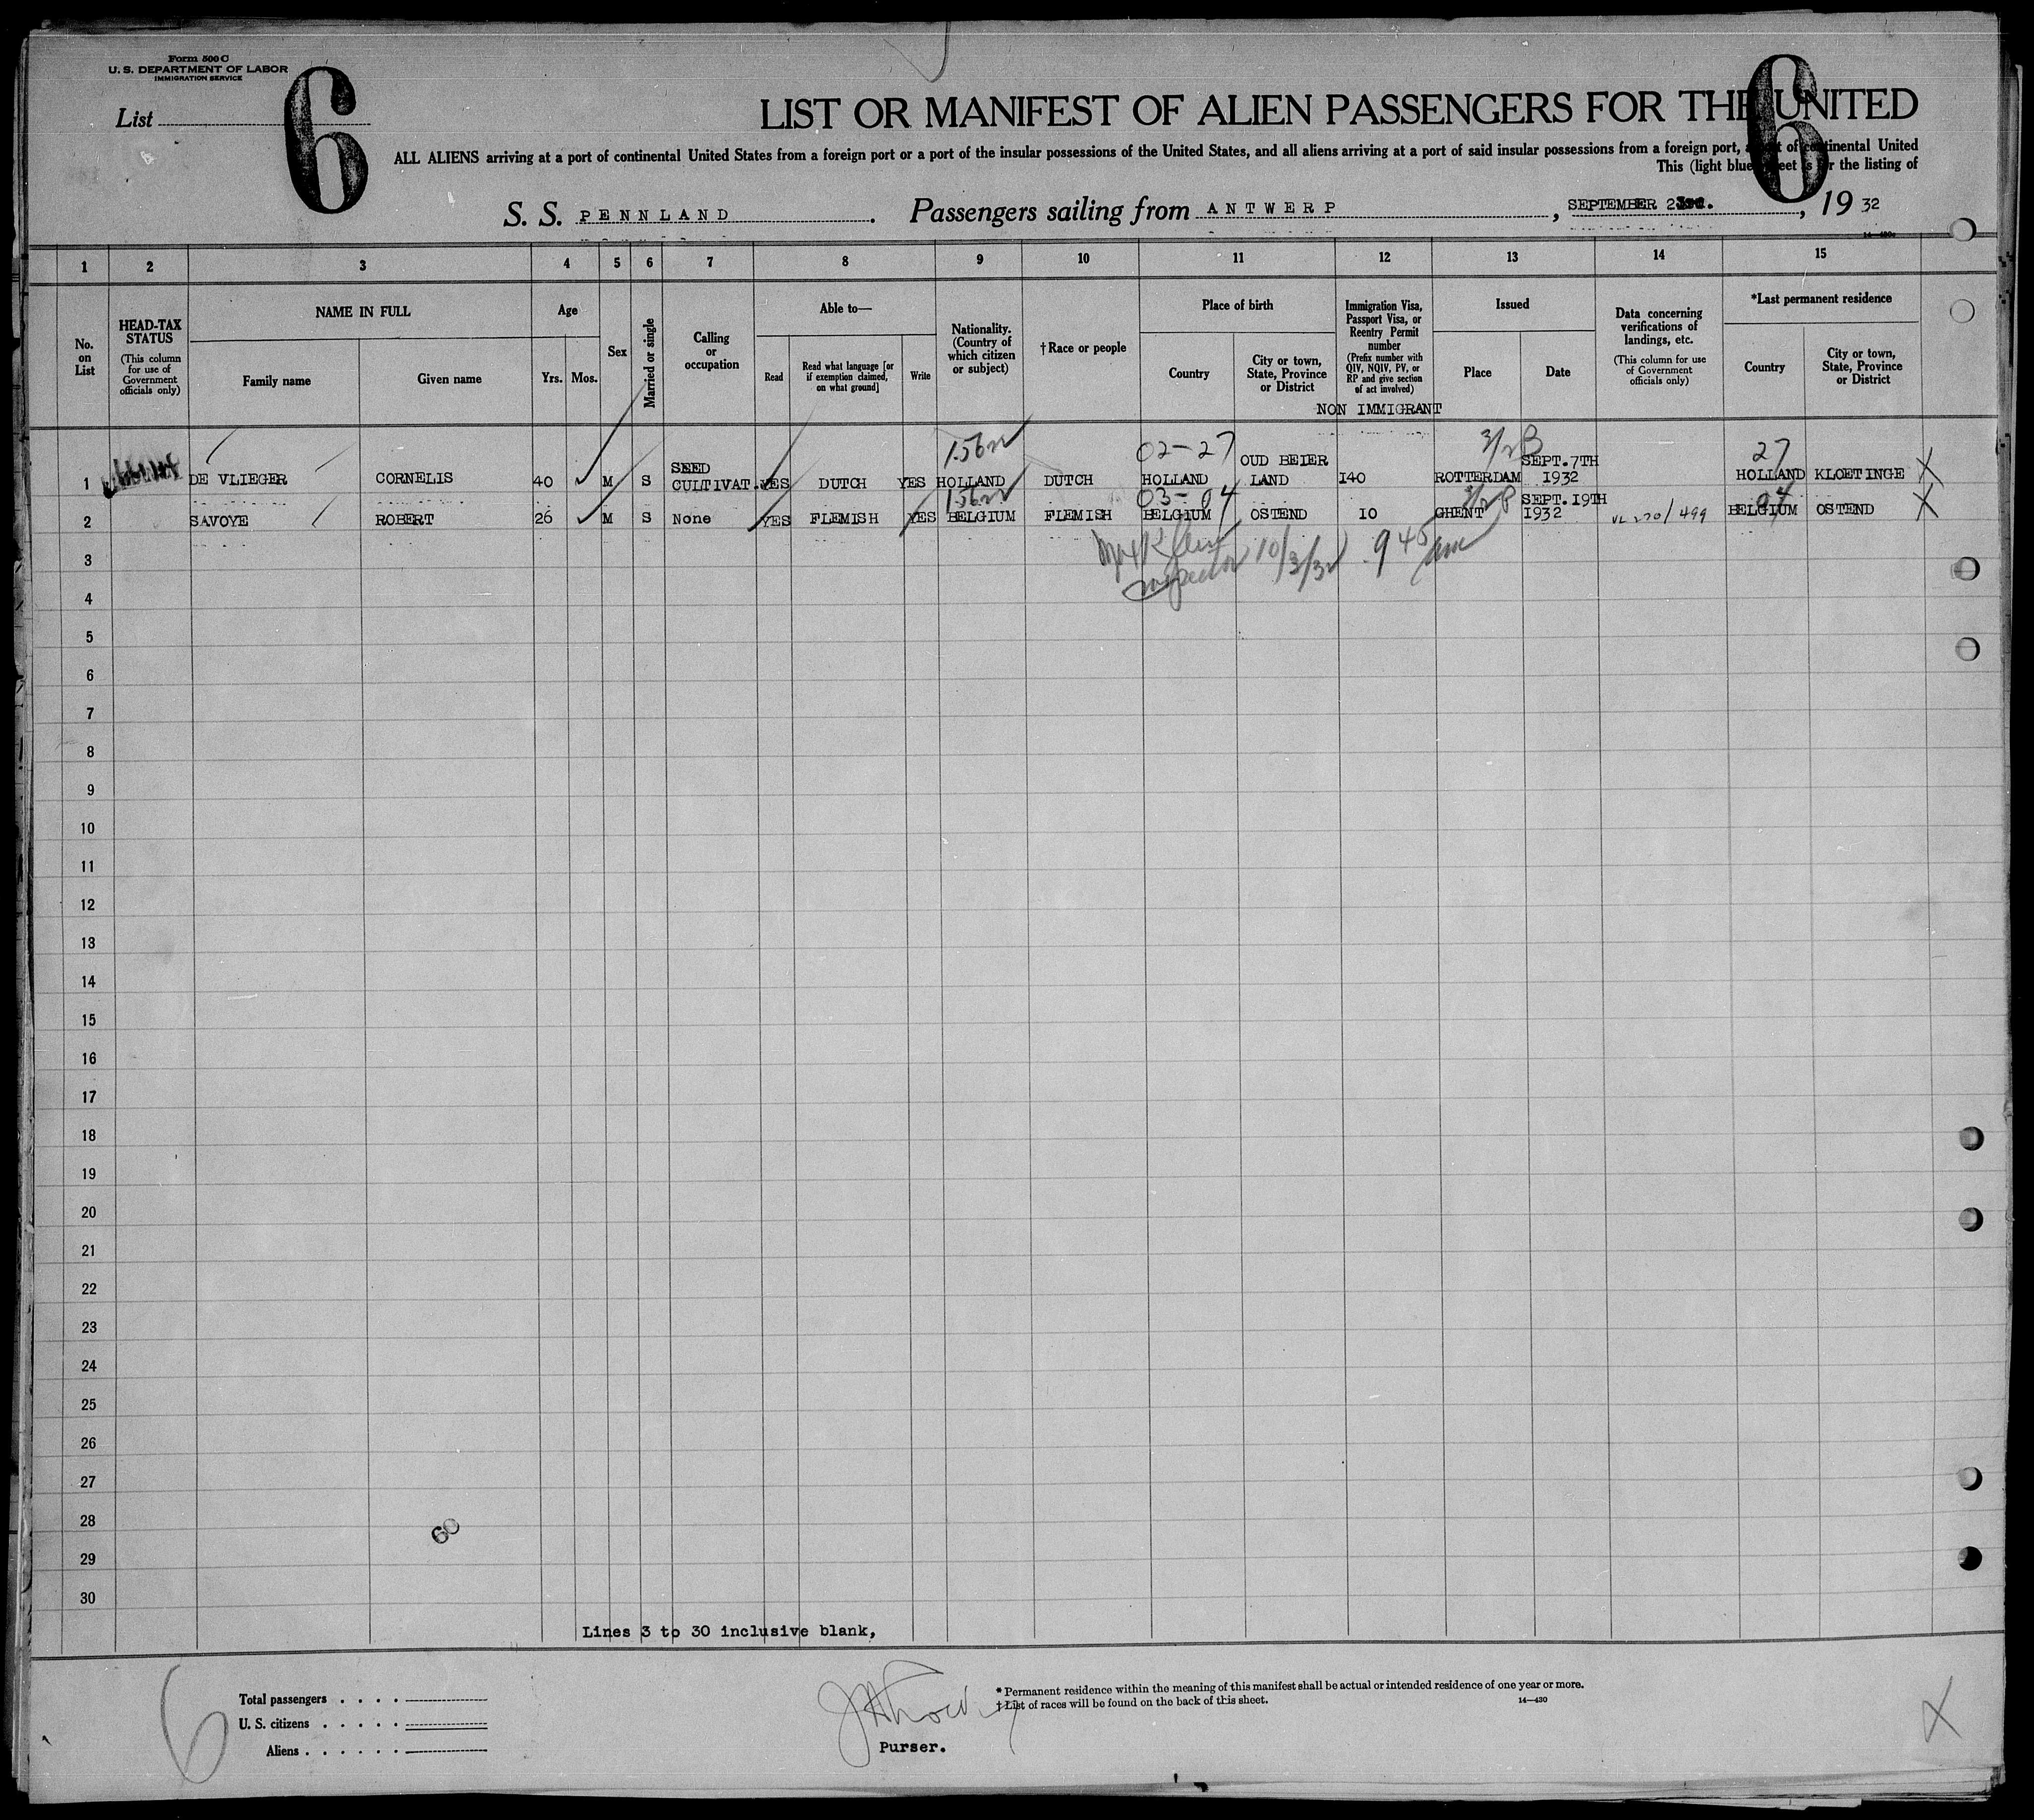 Form 500 C
U. S. DEPARTMENT OF LABOR
IMMIGRATION SERVICE
List 6
6
LIST OR MANIFEST OF ALIEN PASSENGERS FOR THE UNITED
ALL ALIENS arriving at a port of continental United States from a foreign port or a port of the insular possessions of the United States, and all aliens arriving at a port of said insular possessions from a foreign port, a port of continental United
This (light blue) sheet is for the listing of
S. S. PENNLAND. Passengers sailing from ANTWERP, SEPTEMBER , 19 32
1 2 3 4 5 6 7 8 9 10 11 12 13 14 15
No. on List
HEAD-TAX STATUS
(This column for use of Government officials only)
NAME IN FULL
Family name
Given name
Age
Yrs. Mos.
Sex
Married or single
Calling or occupation
Able to—
Read
Read what language [or if exemption claimed, on what ground]
Write
Nationality. (Country of which citizen or subject)
†Race or people
Place of birth
Country
City or town, State, Province or District
Immigration Visa, Passport Visa, or Reentry Permit number
(Prefix number with QIV, NQIV, PV, or RP and give section of act involved)
Issued
Place
Date
Data concerning verifications of landings, etc.
(This column for use of Government officials only)
*Last permanent residence
Country
City or town, State, Province or District
NON IMMIGRANT
02-27 27
1 DE VLIEGER CORNELIS 40 M S SEED CULTIVAT. YES DUTCH YES HOLLAND DUTCH HOLLAND OUD BEIER LAND 140 ROTTERDAM SEPT.7TH 1932 HOLLAND KLOETINGE X
03-04 04
2 SAVOYE ROBERT 26 M S None YES FLEMISH YES BELGIUM FLEMISH BELGIUM OSTEND 10 GHENT SEPT.19TH 1932 BELGIUM OSTEND X
Inspector 10/3/32 945 am
3
4
5
6
7
8
9
10
11
12
13
14
15
16
17
18
19
20
21
22
23
24
25
26
27
28
60
29
30
Lines 3 to 30 inclusive blank,
6
Total passengers . . . .
U. S. citizens . . . . .
Aliens . . . . . .
Purser.
* Permanent residence within the meaning of this manifest shall be actual or intended residence of one year or more.
† List of races will be found on the back of this sheet.
14—430
X